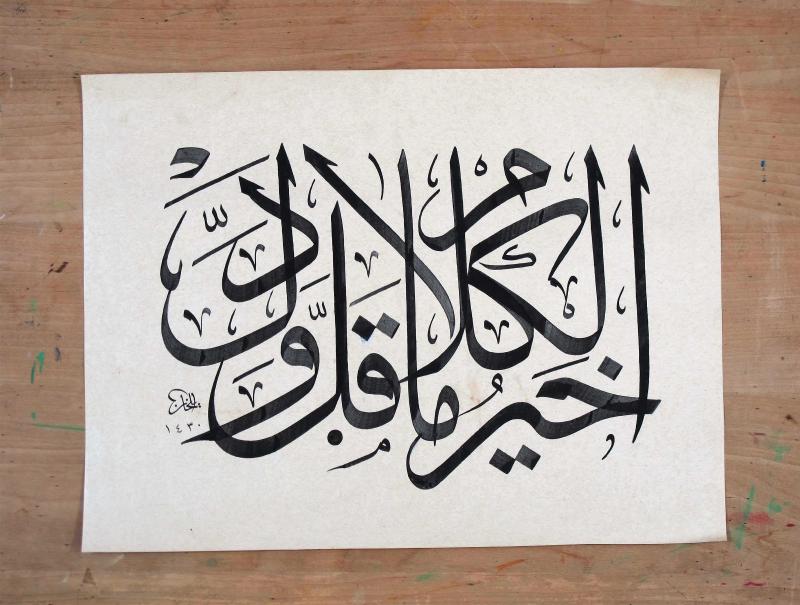 خير الكلام ما قل ودل
١٤٣٠